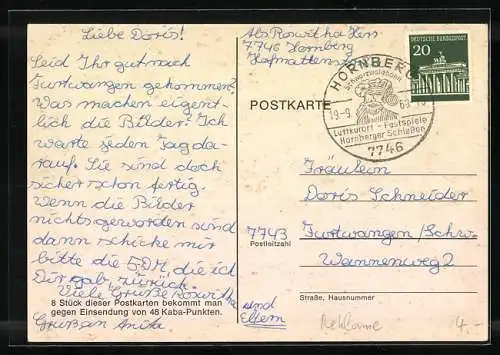 Liebe Doris!
Seid Ihr gut nach
Furtwangen gekommen?
Was machen eigent-
lich die Bilder? Ich
warte jeden Tag da-
rauf. Sie sind doch
sicher schon fertig.
Wenn die Bilder
nichts geworden sind
dann schicke mir
bitte die 5 DM, die ich
Dir gab zurück.
Viele Grüße Roswitha
8 Stück dieser Postkarten bekommt man
gegen Einsendung von 48 Kaba-Punkten.
Gruß an Anita
Abs Roswitha
7746 Hornberg
POSTKARTE
HORNBERG
Schwarzwaldbahn
Luftkurort - Festspiele
Hornberger Schießen
7746
DEUTSCHE BUNDESPOST
20
Fräulein
Doris Schneider
7743 Furtwangen/Schw.
Postleitzahl
Wannenweg 2
Straße, Hausnummer
und
Eltern
Reklame
4,-